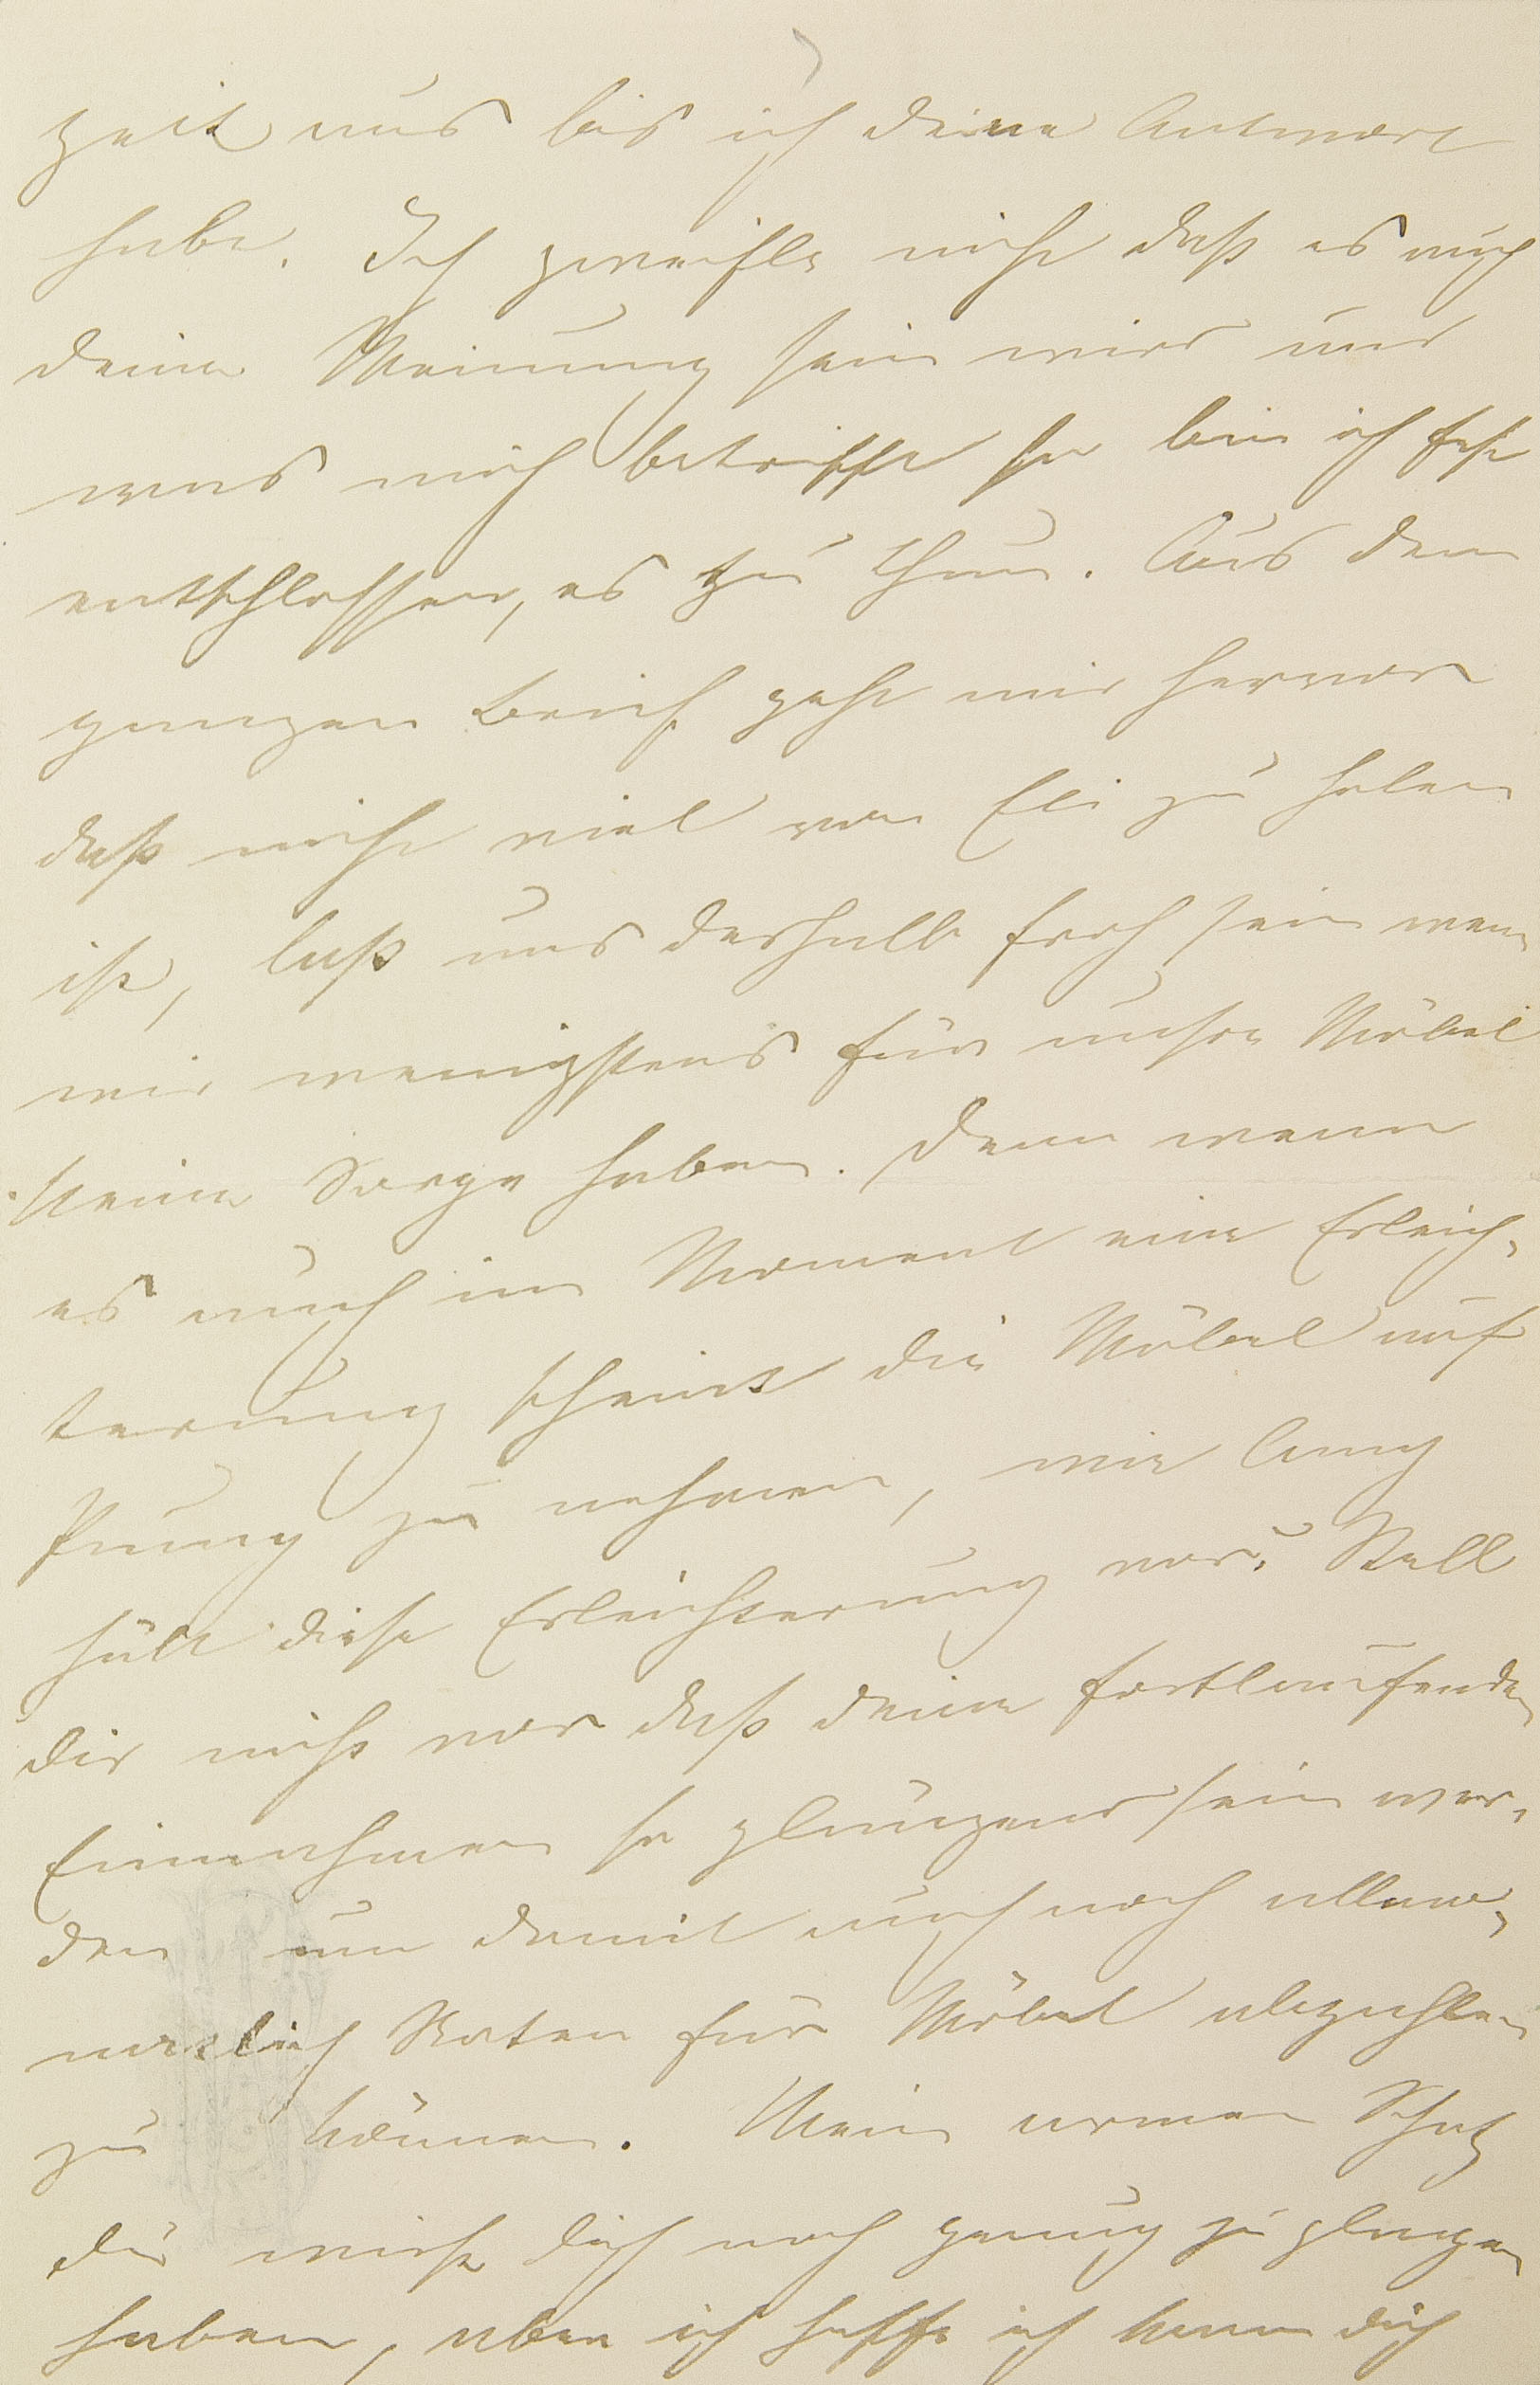 zeit aus bis ich deine Antwort
habe. Ich zweifle nicht daß es auch
deine Meinung sein wird und
was mich betrifft so bin ich fest
entschlossen, es zu thun. Aus dem
ganzen Brief geht mir hervor
daß nicht viel von Eli zu holen
ist, laß uns deshalb froh sein wenn
wir wenigstens für unsre Möbel
keine Sorge haben. Denn wenn
es auch im Moment eine Erleich-
terung scheint die Möbel auf
Pump zu nehmen, wie lang
hält diese Erleichterung vor? Stell
dir nicht vor daß deine fortlaufenden
Einnahmen so glänzend sein wer-
den um damit auch noch allmo-
natlich Raten für Möbel abzuzahlen
zu können. Mein armer Schatz
du wirst dich noch genug zu plagen
haben, aber ich hoffe ich kann dich